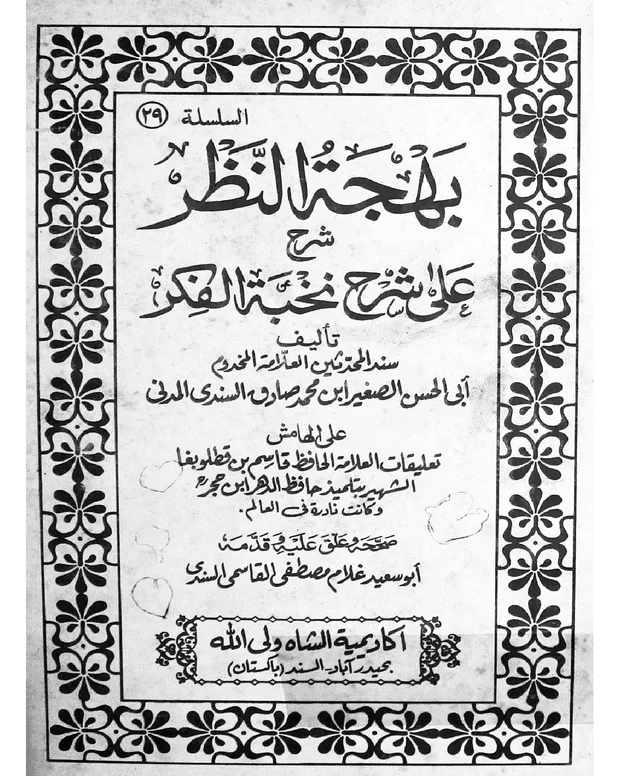 السلسلة ٢٩
بَهْجَةُ النَّظَر
شرح
عَلىٰ شرح نخبة الفِكَر
تأليف
سند المحدثين العلّامة المخدوم
أبي الحسن الصغير ابن محمد صادق السندى المدنى
على الهامش
تعليقات العلامة الحافظ قاسم بن قطلوبغا
الشهير بتلميذ حافظ الدهر ابن حجر
وكانت نادرة فى العالم.
صَحّحَه وعَلّقَ عَلَيهِ وقَدَّمَه
أبوسعيد غلام مصطفى القاسمى السندى
أكاديمية الشاه ولى الله
بحيدرآباد- السند (باكستان)